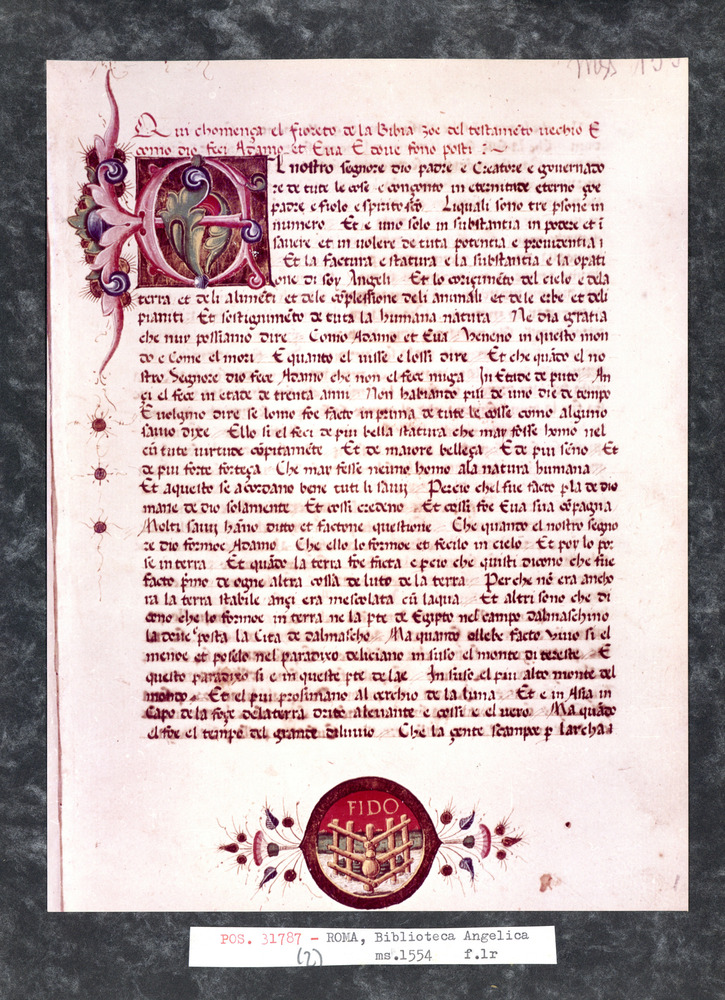 Qui chomença el fioreto de la Bibia zoe del testamẽto uechio E
como dio feci Adamo et Eua E doue fono posti :~
EL nostro segnore dio padre e Creatore e gouernado
re de tute le cose e conçonto in eternitade eterno çoe
padre e fiolo e spirito sc̃o Liquali sono tre psone in
numero Et e uno solo in substantia in potere et ĩ
sauere et in uolere de tuta potentia e prouidentia i
Et la factura e statura e la substantia e la opati
one di soy Angeli Et lo coriçimẽto del cielo e dela
terra et deli alimẽti et dele cõplessione deli animali et dele erbe et deli
pianti Et sostignimẽto de tuta la humana natura Ne dia gratia
che nuy possiamo dire Como Adamo et Eua Veneno in questo mon
do e Come el mori E quanto el uisse e lossi dire Et che quãdo el no
stro Segnore dio fece Adamo che non el fece miga In Etade de puto An
çi el fece in etade de trenta anni Non habiando piu de uno die de tempo
E uolgino dire se lomo foe facto in prima de tute le cosse como alguno
sauio dixe Ello si el feci de piu bella statura che mar fosse homo nel
cũ tute uirtude cõpitamẽte Et de maiore belleça E de piu sẽno Et
de piu forte forteça Che mar fosse neuno homo ala natura humana
Et aquesto se acordano bene tuti li sauij Percio chel fue facto p la de dio
mane de dio solamente Et cossi credeno Et cossi foe Eua sua cõpagna
Molti sauij hãno dito et factone questione Che quando el nostro segno
re dio formoe Adamo Che ello lo formoe et fecilo in cielo Et por lo po
se in terra Et quãdo la terra foe facta e percio che quisti dicono che fue
facto p̃mo de ogne altra cossa de luto de la terra Perche nõ era ancho
ra la terra stabile ançi era mescolata cũ laqua Et altri sono che di
cono che lo formoe in terra ne la pte de Egipto nel campo dalmaschino
la doue posta la Cita de dalmascho Ma quando ellebe facto uiuo si el
menoe et poselo nel paradixo deliciano in suso el monte di tereste E
questo paradixo si e in queste pte de lae In suso el piu alto monte del
mondo Et el piu prosimano al cerchio de la luna Et e in Asia in
Capo de la foçe dela terra drito aleuante e cossi e el uero Ma quãdo
el foe el tempo del grande diluuio Che la gente scampoe p larcha
FIDO
POS. 31787 - ROMA, Biblioteca Angelica
(2) ms.1554 f.1r